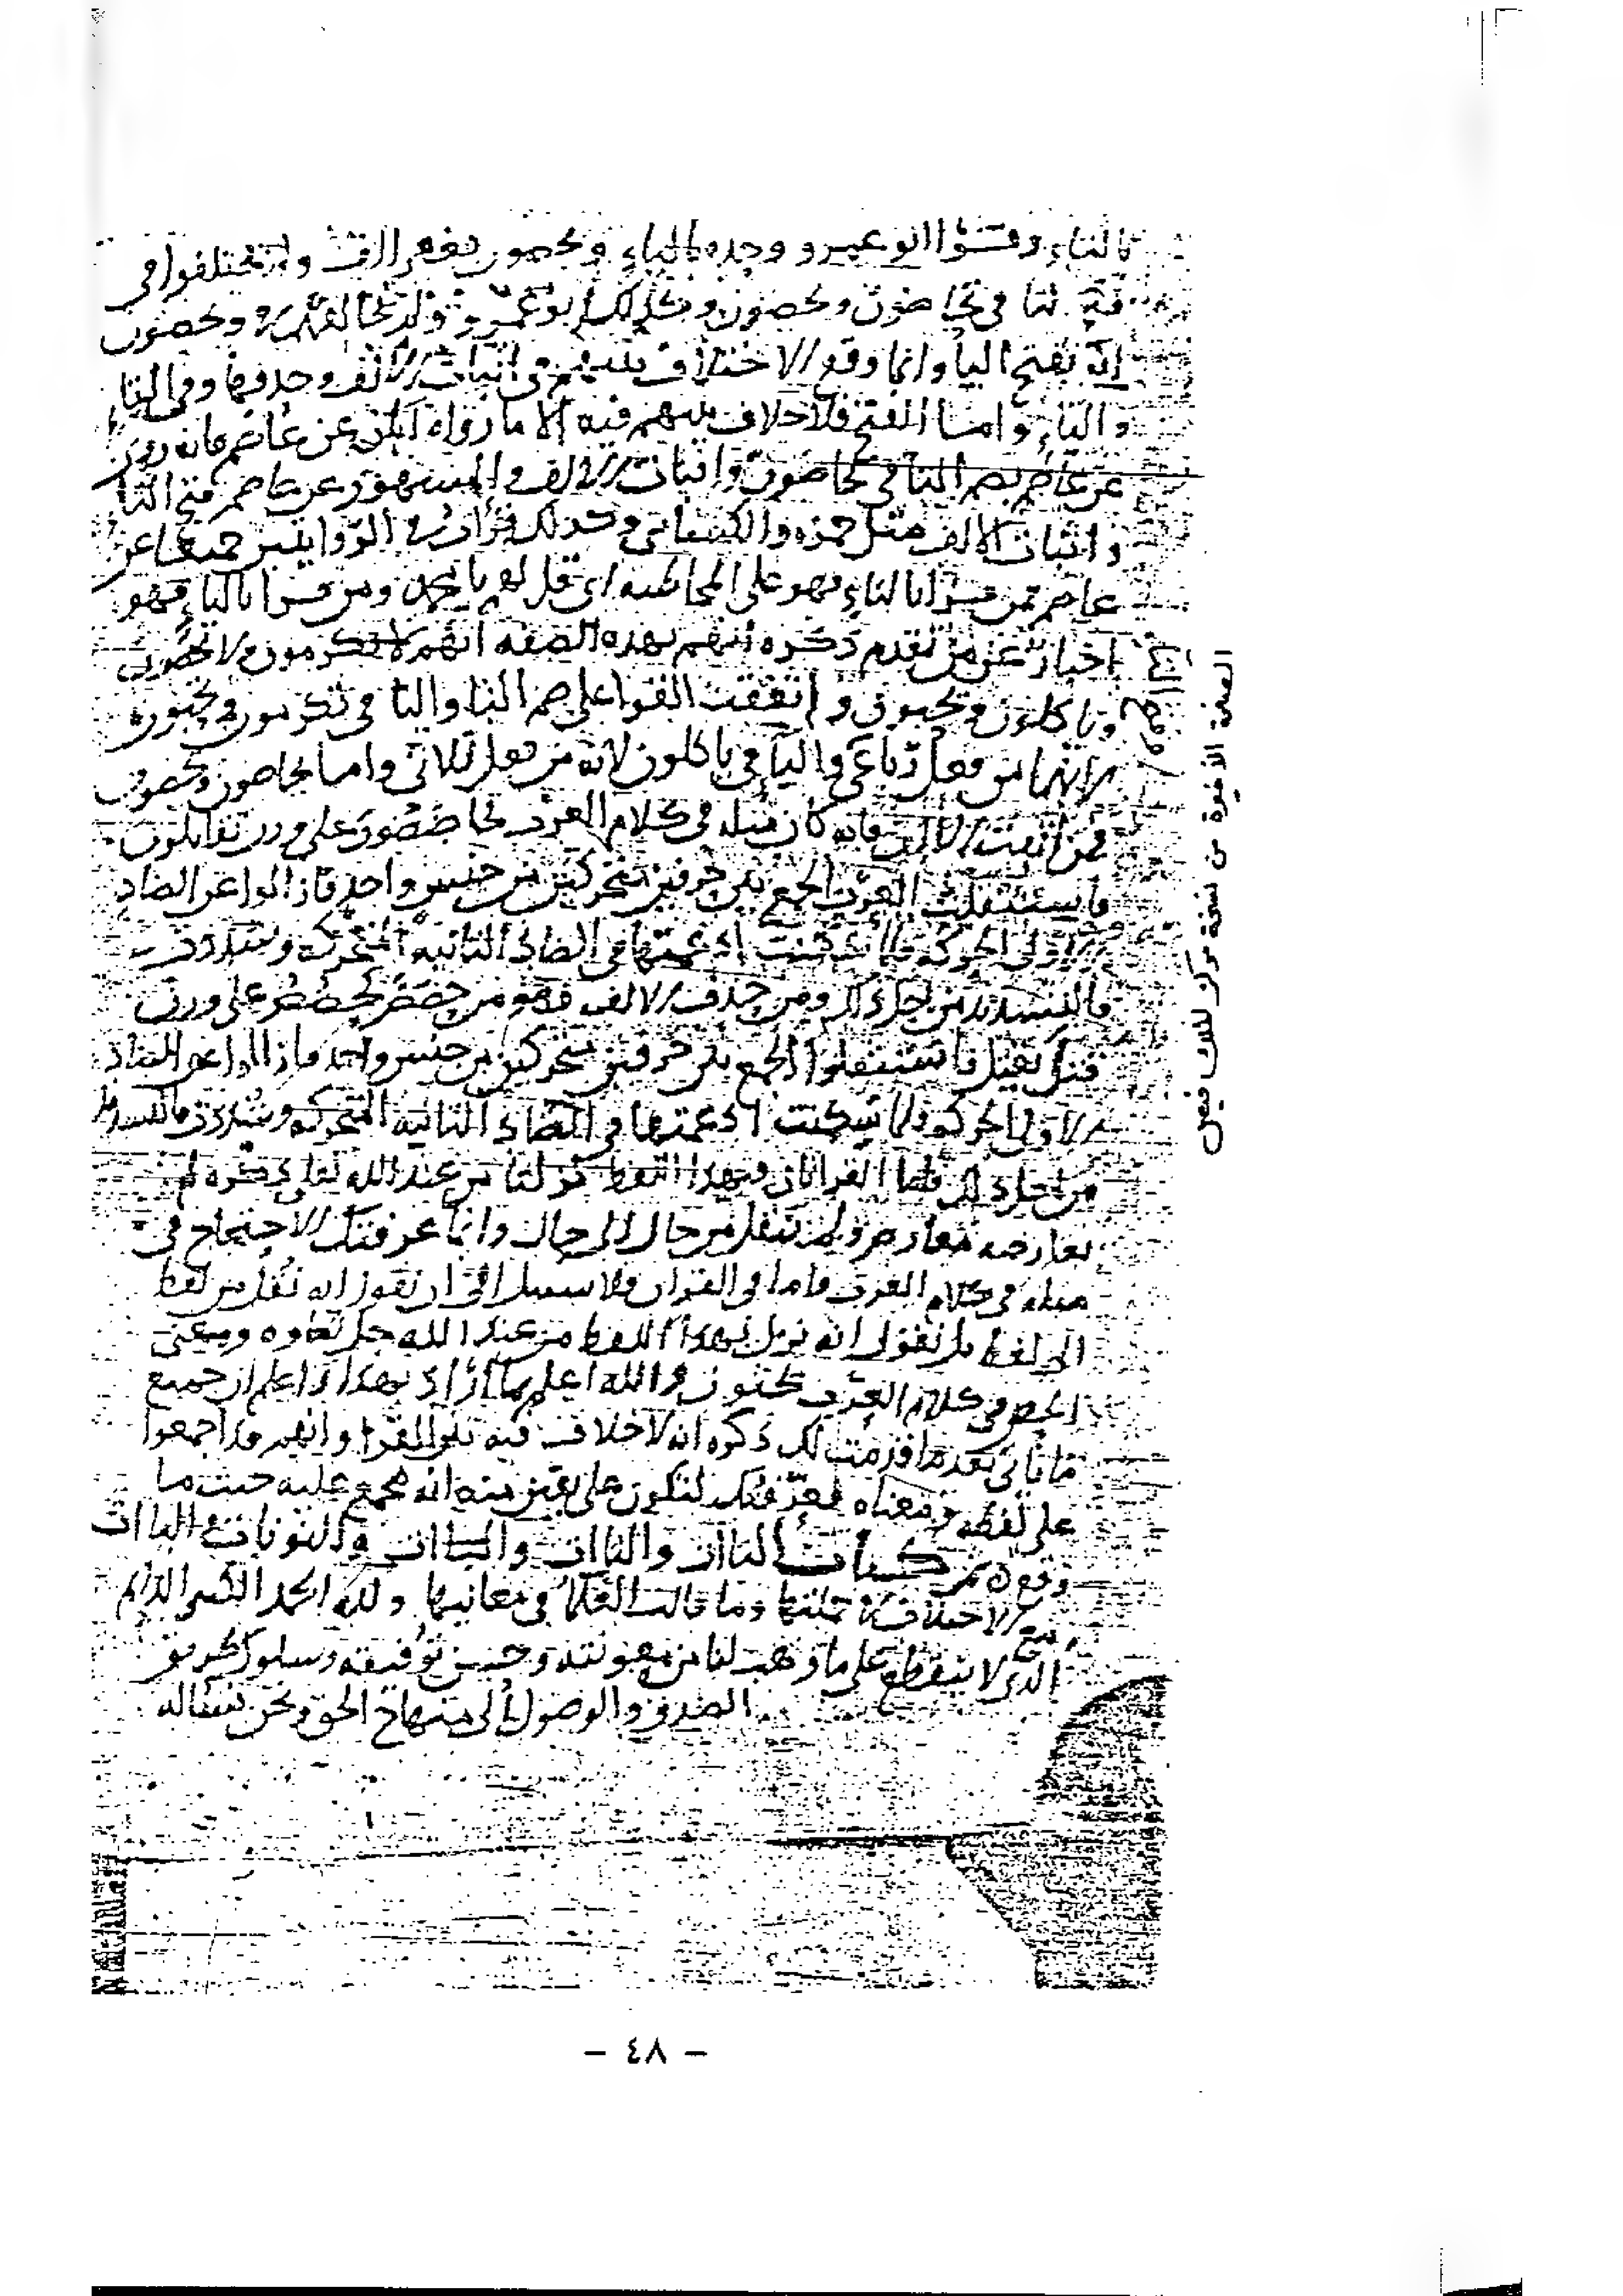 بالتاء وقرا ابو عمرو وحده بالياء ويحضون بغير الف ولم يختلفوا في
فتح التا في تحاضون وتحضون وكذلك ابو عمرو ويحضون
انه بفتح اليا وانما وقع الاختلاف بينهم في اثبات الالف وحذفها وفي التا
والياء واما الفتح فلا خلاف بينهم فيه الا ما رواه عن عاصم فانه روى
عن عاصم بضم التا في تحاضون واثبات الالف والمشهور عن عاصم فتح التا
واثبات الالف مثل حمزه والكسائي وكذلك قرات في الروايتين جميعا عن
عاصم فمن قرا بالتاء فهو على المخاطبه اي قل لهم يا محمد ومن قرا بالياء فهو
اخبار عن من تقدم ذكره انهم بهذه الصفه انهم لا يكرمون ولا يحضون
وياكلون ويحبون واتفقت القرا على ضم التا واليا في تكرمون
لانهما من فعل رباعي واليا في ياكلون لانه من فعل ثلاثي واما تحاضون وتحضون
فمن اثبت الالف فانه كان مثله في كلام العرب تحاضضون على وزن تقابلون
فاستثقلت العرب الجمع بين حرفين متحركين من جنس واحد فازالوا عن الضاد
الاولى الحركه فلما سكنت ادغمتها في الضاد الثانيه المتحركه وشددت
فالتشديد من اجل ذلك ومن حذف الالف فهو من حضض يحضض على وزن
قتل يقتل فاستثقلوا الجمع بين حرفين متحركين من جنس واحد فازالوا عن الضاد
الاولى الحركه فلما سكنت ادغمتها في الضاد الثانيه المتحركه وشددت فالتشديد
من اجل ذلك فاما القران فبهذا اللفظ نزل لنا من عند الله تعالى ذكره لم
يعارضه معارض ولم ينقل من حال الى حال وانما عرفتك الاحتجاج في
مثله في كلام العرب فاما في القران فلا سبيل الى ان نقول انه نقل من لفظ
الى لفظ بل نقول انه نزل بهذا اللفظ من عند الله جل ثناوه ومعنى
الحض في كلام العرب والله اعلم بما اراد بهذا واعلم ان جميع
ما ياتي بعد ما قدمت لك ذكره انه لا خلاف فيه بين القرا وانهم قد اجمعوا
على لفظه ومعناه فعرفتك لتكون على يقين منه انه مجمع عليه حيث ما
وقع من كتاب التاات والثاات والياات والنونات والباات
الاختلاف في مثلها وما قالت العلما في معانيها ولله الحمد الكثير الدايم
الذي لا ينقطع على ما وهب لنا من معونته وحسن توفيقه وسلوك طريق
الصدق والوصول الى منهاج الحق ونحن نساله
الصفحة الأخيرة من نسخة مركز الملك فيصل
- ٤٨ -